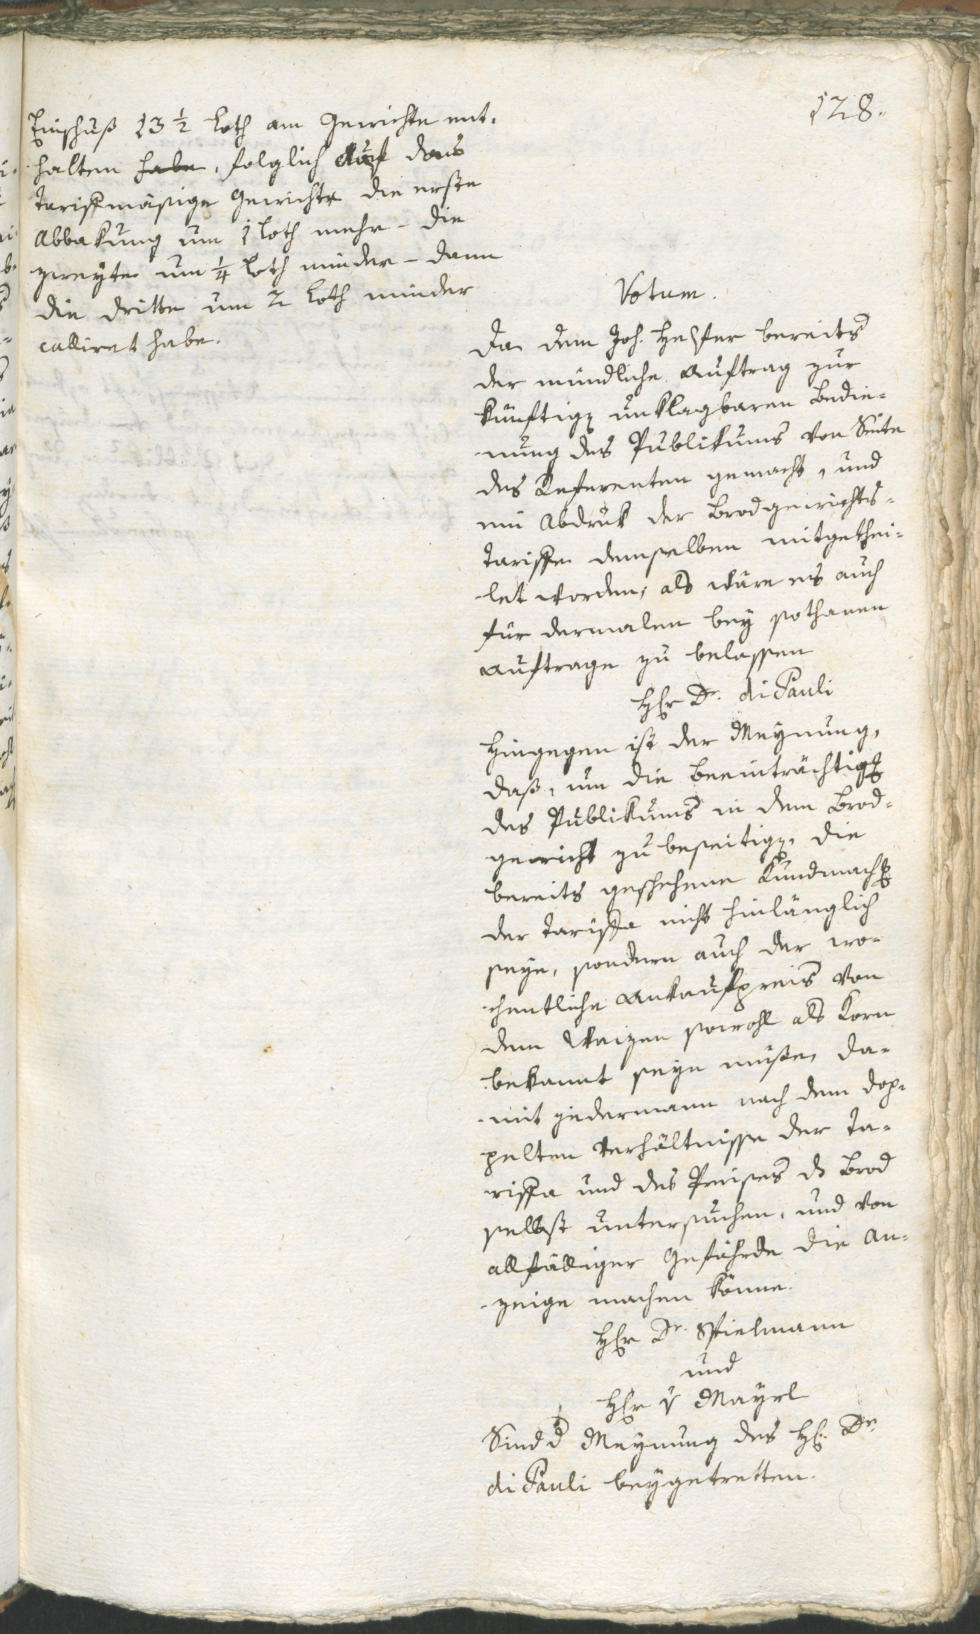 128.
Einschuß 13 1/2 Loth am Gewichte ent-
halten habe, folglich auf das
tariffmäßige Gewicht die erste
Abbakung um 1 Loth mehr – die
zweyte um 1/4 Loth minder – dann
die dritte um 2 Loth minder
calliret habe.
Votum.
Da dem Joh. bereits
der mündliche Auftrag zur
künftig unklagbaren Bedie-
nung des Publikums von Seite
des Referenten gemacht, und
ein Abdruk der Brodgewichts-
tariffe demselben mitgethei-
let worden, als wäre es auch
für dermalen bey sothanen
Auftrage zu belassen
H Dr. di Pauli
Hingegen ist der Meynung,
daß, um die Beeinträchtigg
des Publikums in dem Brod-
gewicht zu beseitigen, die
bereits geschehene Kundmachg
der Tariffa nicht hinlänglich
seye, sondern auch der wo-
chentliche Ankaufspreis von
dem Waizen sowohl als Korn
bekannt seyn müße, da-
mit jedermann nach dem dop-
pelten Verhältnisse der Ta-
riffa und des Preises d Brod
selbst untersuchen, und von
allfälliger Gefährde die An-
zeige machen könne.
H Dr. Spielmann
und
H v Mayrl
Sind d Meynung des H. Dr.
di Pauli beygetretten.